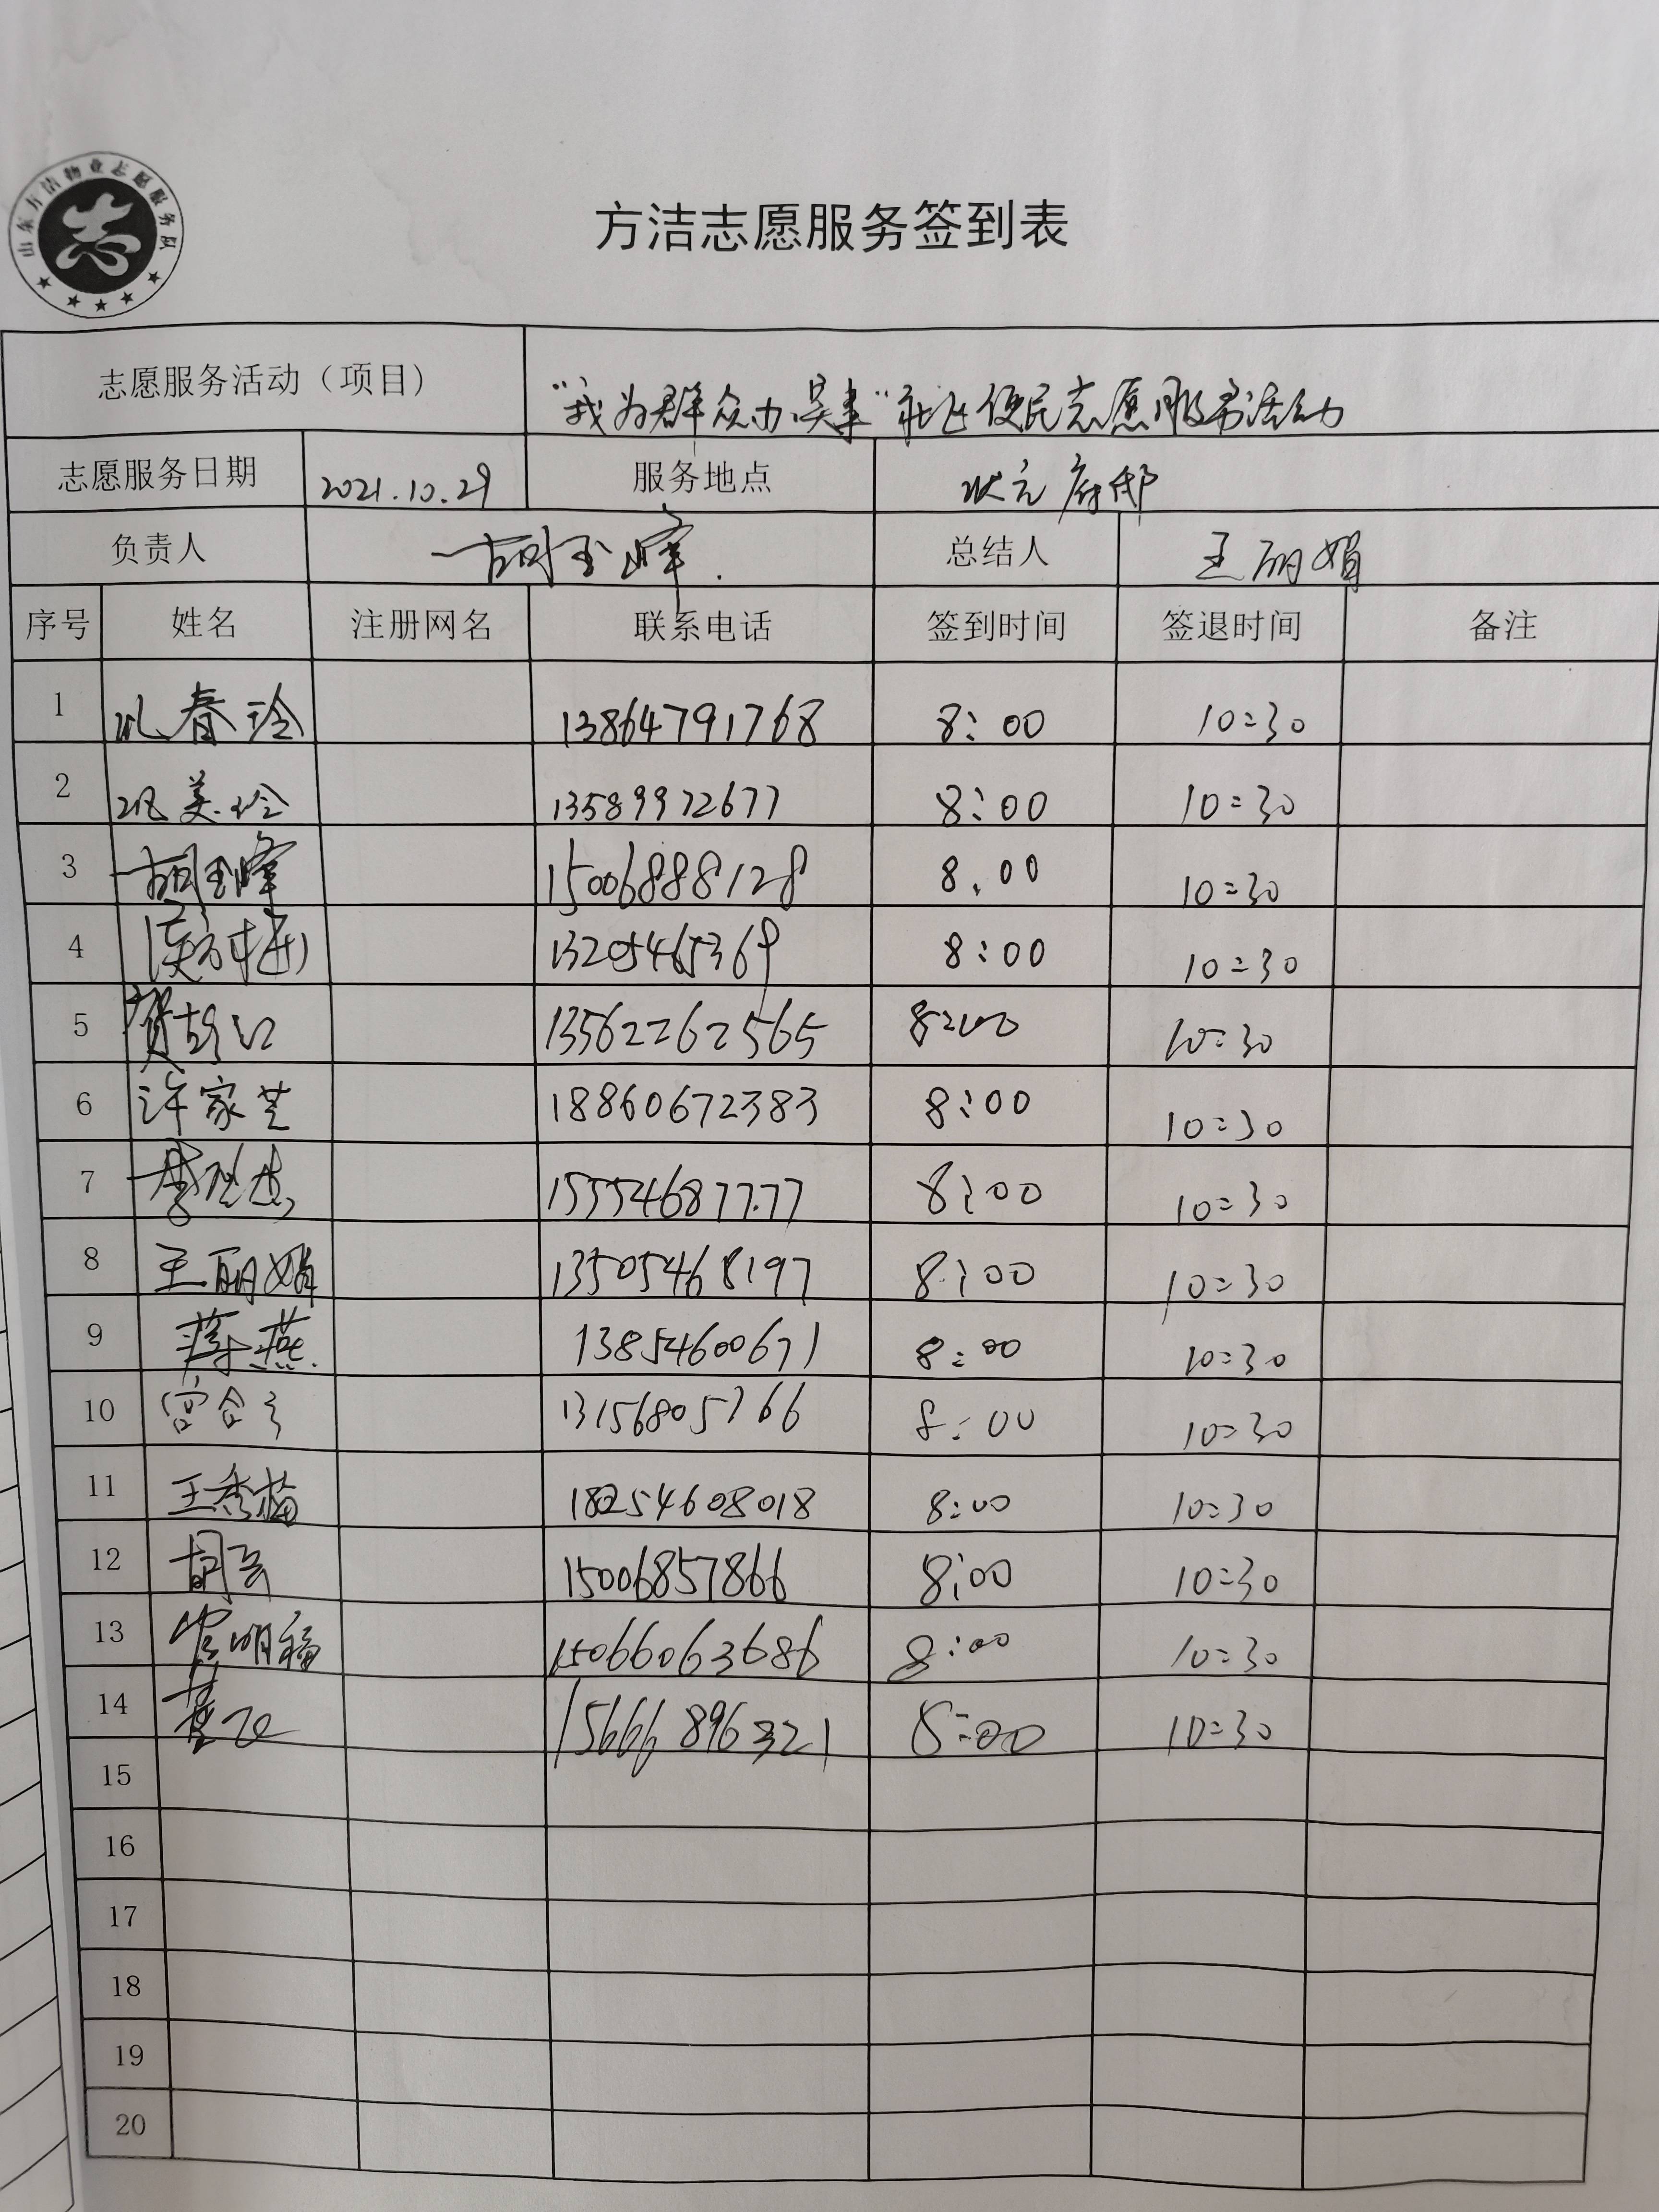 山东方洁物业志愿服务队
志
方洁志愿服务签到表
志愿服务活动（项目） “我为群众办实事”社区便民志愿服务活动
志愿服务日期 2021.10.29 服务地点 状元府邸
负责人 胡玉峰 总结人 王丽娟
序号 姓名 注册网名 联系电话 签到时间 签退时间 备注
1 春玲 13864791768 8:00 10:30
2 美玲 13589972677 8:00 10:30
3 胡玉峰 15006888128 8:00 10:30
4 13205465369 8:00 10:30
5 13562262565 8:00 10:30
6 许家芝 18860672383 8:00 10:30
7 15554687777 8:00 10:30
8 王丽娟 13505468197 8:00 10:30
9 蒋燕 13854600671 8:00 10:30
10 13156805766 8:00 10:30
11 王秀梅 18254608018 8:00 10:30
12 胡云 15006857866 8:00 10:30
13 明福 15066063686 8:00 10:30
14 15666896321 8:00 10:30
15
16
17
18
19
20